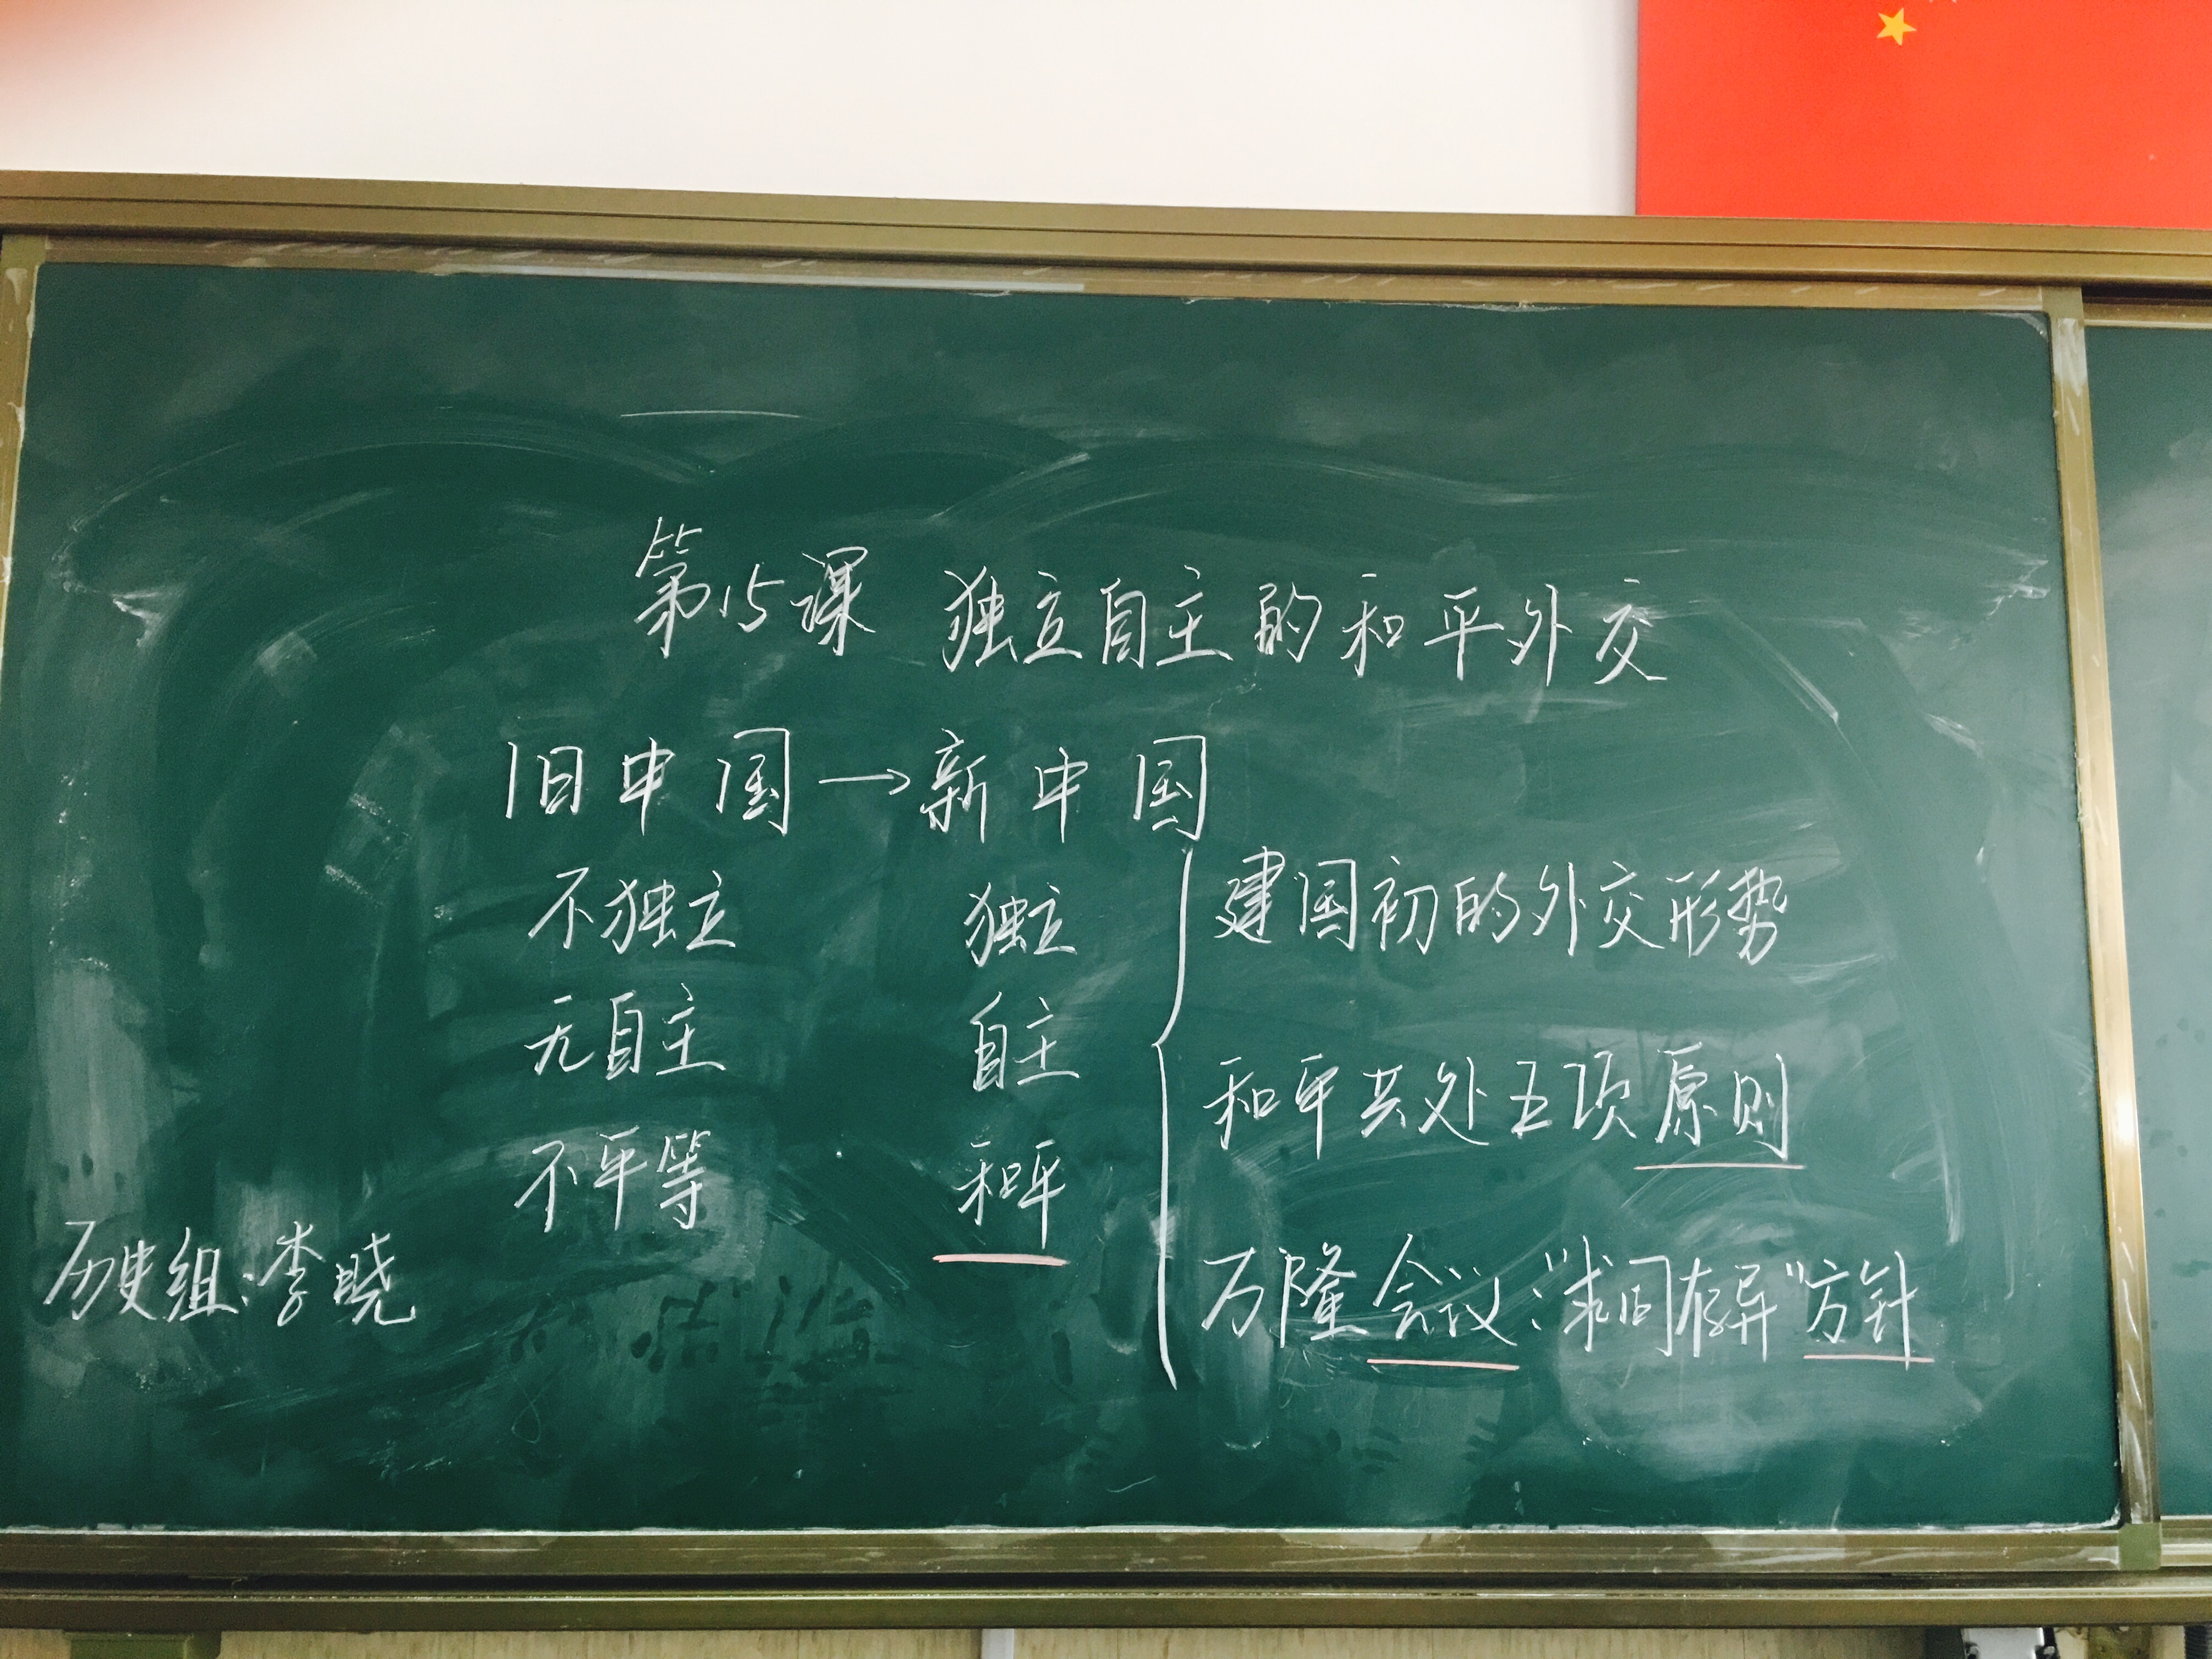 第15课 独立自主的和平外交
旧中国→新中国
不独立 独立
无自主 自主
不平等 和平
建国初的外交形势
和平共处五项原则
万隆会议:“求同存异”方针
历史组:李晓